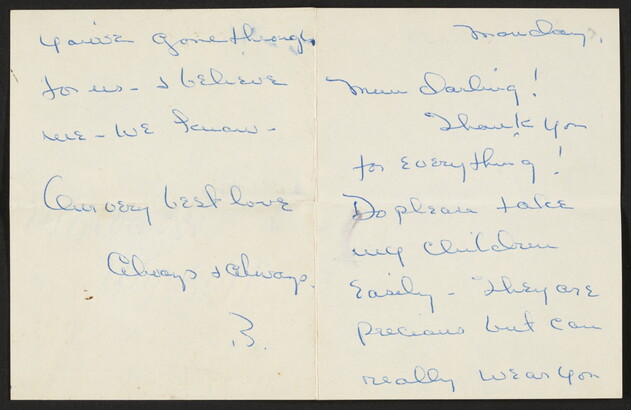 Monday.
Mum darling!
Thank you
for everything!
Do please take
my children
easily - They are
precious but can
really wear you
you've gone through
for us - & believe
me - we know -
Our very best love
Always & always.
B.